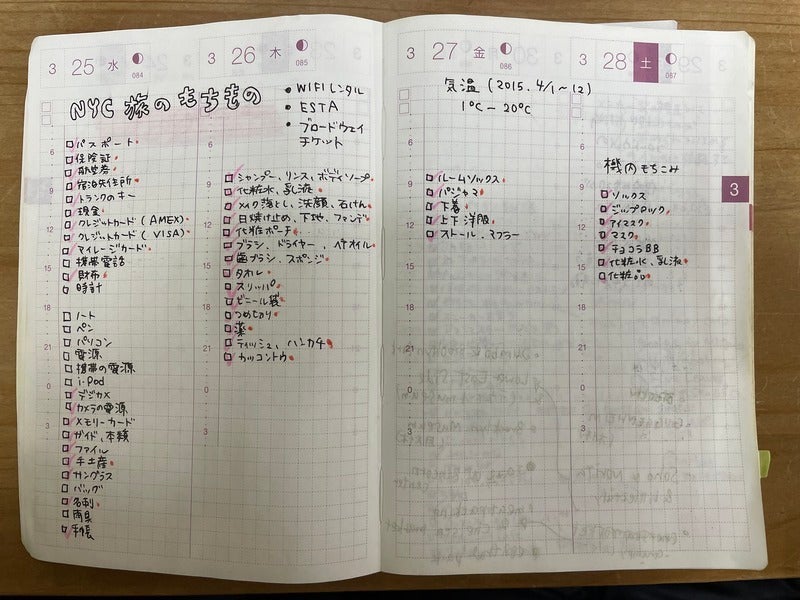 3 25 水 084
3 26 木 085
NYC 旅のもちもの
• WIFIレンタル
• ESTA
• ブロードウェイ
チケット
6
9
12
15
18
21
0
3
パスポート
保険証
航空券
宿泊先住所
トランクのキー
現金
クレジットカード(AMEX)
クレジットカード(VISA)
マイレージカード
携帯電話
財布
時計
ノート
ペン
パソコン
電源
携帯の電源
i-Pod
デジカメ
カメラの電源
メモリーカード
ガイド、本類
ファイル
手土産
サングラス
バッグ
名刺
雨具
手帳
6
9
12
15
18
21
0
3
シャンプー、リンス、ボディソープ
化粧水、乳液
メイク落とし、洗顔、石けん
日焼け止め、下地、ファンデ
化粧ポーチ
ブラシ、ドライヤー、ヘアオイル
歯ブラシ、スポンジ
タオル
スリッパ
ビニール袋
つめきり
薬
ティッシュ、ハンカチ
カッコントウ
3 27 金 086
3 28 土 087
気温(2015.4/1~12)
1℃-20℃
6
9
12
15
18
21
0
3
ルームソックス
パジャマ
下着
上下洋服
ストール、マフラー
機内もちこみ
6
9
12
15
18
21
0
3
ソックス
ジップロック
アイマスク
マスク
チョコラBB
化粧水、乳液
化粧品
3